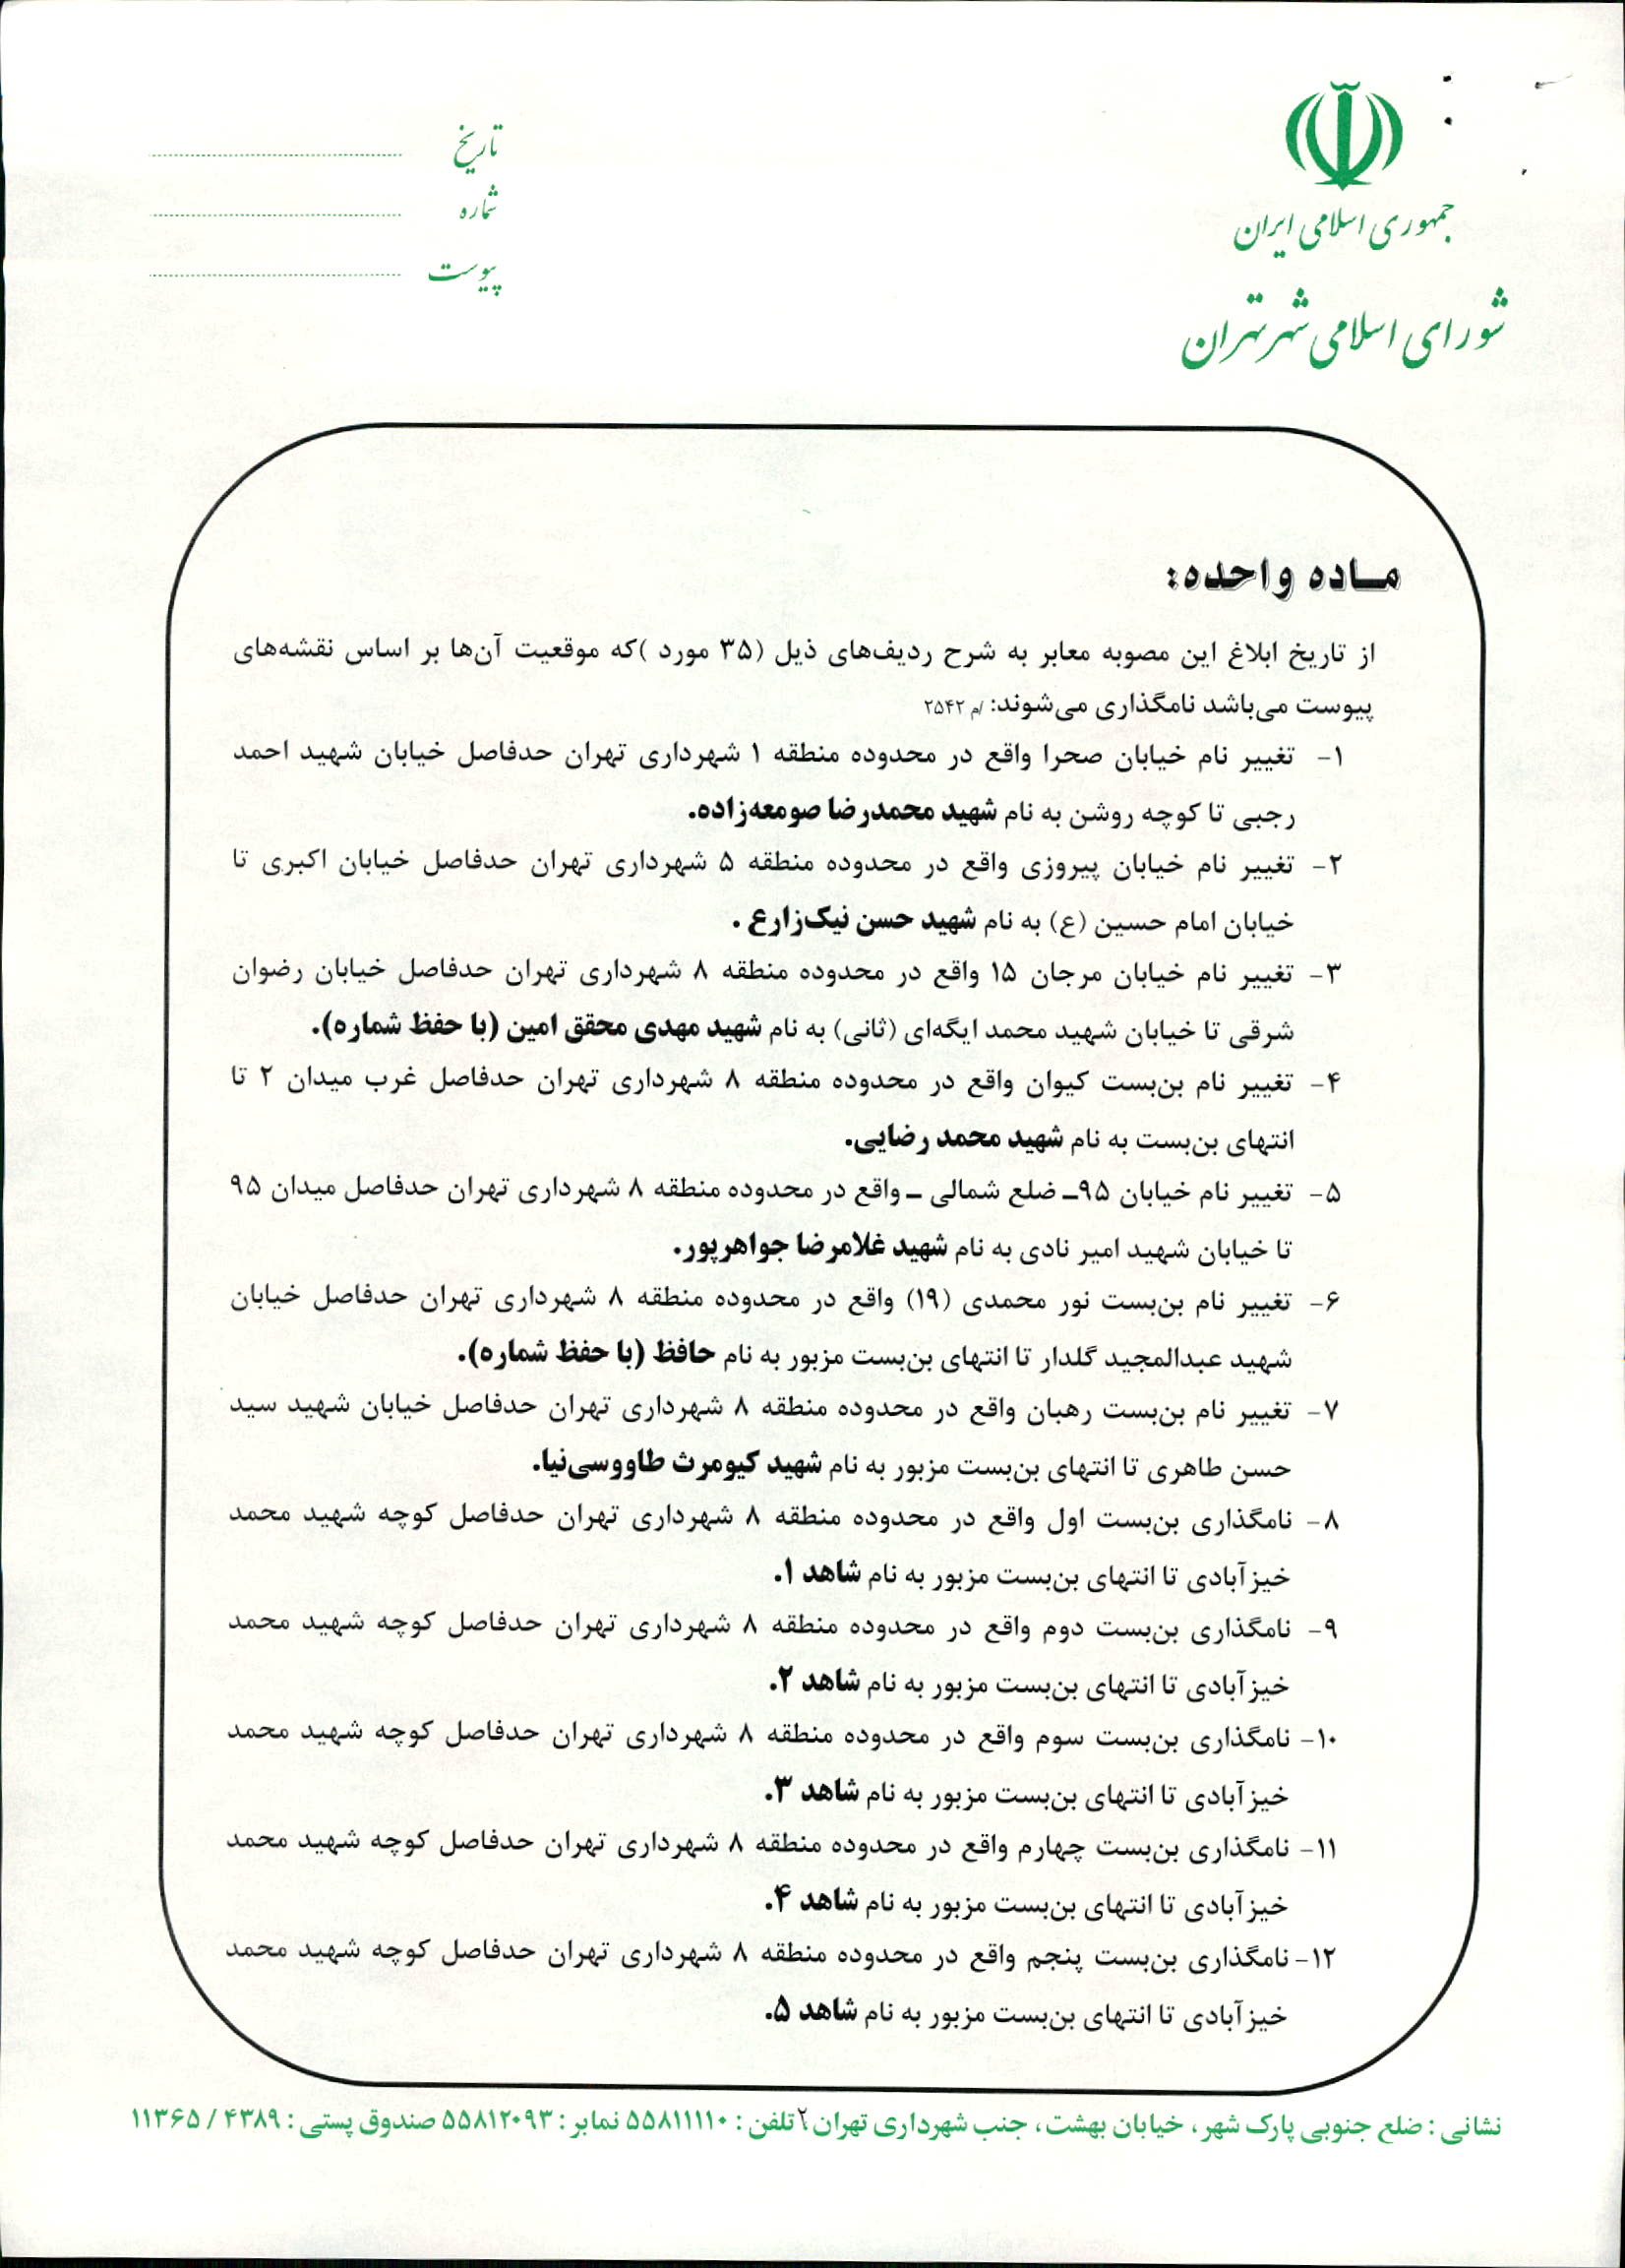 جمهوری اسلامی ایران
شورای اسلامی شهر تهران
تاریخ
شماره
پیوست
مــاده واحده:
از تاریخ ابلاغ این مصوبه معابر به شرح ردیف‌های ذیل (۳۵ مورد )که موقعیت آن‌ها بر اساس نقشه‌های
پیوست می‌باشد نامگذاری می‌شوند: /م ۲۵۴۲
۱- تغییر نام خیابان صحرا واقع در محدوده منطقه ۱ شهرداری تهران حدفاصل خیابان شهید احمد
رجبی تا کوچه روشن به نام شهید محمدرضا صومعه‌زاده.
۲- تغییر نام خیابان پیروزی واقع در محدوده منطقه ۵ شهرداری تهران حدفاصل خیابان اکبری تا
خیابان امام حسین (ع) به نام شهید حسن نیک‌زارع .
۳- تغییر نام خیابان مرجان ۱۵ واقع در محدوده منطقه ۸ شهرداری تهران حدفاصل خیابان رضوان
شرقی تا خیابان شهید محمد ایگه‌ای (ثانی) به نام شهید مهدی محقق امین (با حفظ شماره).
۴- تغییر نام بن‌بست کیوان واقع در محدوده منطقه ۸ شهرداری تهران حدفاصل غرب میدان ۲ تا
انتهای بن‌بست به نام شهید محمد رضایی.
۵- تغییر نام خیابان ۹۵ـ ضلع شمالی ـ واقع در محدوده منطقه ۸ شهرداری تهران حدفاصل میدان ۹۵
تا خیابان شهید امیر نادی به نام شهید غلامرضا جواهرپور.
۶- تغییر نام بن‌بست نور محمدی (۱۹) واقع در محدوده منطقه ۸ شهرداری تهران حدفاصل خیابان
شهید عبدالمجید گلدار تا انتهای بن‌بست مزبور به نام حافظ (با حفظ شماره).
۷- تغییر نام بن‌بست رهبان واقع در محدوده منطقه ۸ شهرداری تهران حدفاصل خیابان شهید سید
حسن طاهری تا انتهای بن‌بست مزبور به نام شهید کیومرث طاووسی‌نیا.
۸- نامگذاری بن‌بست اول واقع در محدوده منطقه ۸ شهرداری تهران حدفاصل کوچه شهید محمد
خیزآبادی تا انتهای بن‌بست مزبور به نام شاهد ۱.
۹- نامگذاری بن‌بست دوم واقع در محدوده منطقه ۸ شهرداری تهران حدفاصل کوچه شهید محمد
خیزآبادی تا انتهای بن‌بست مزبور به نام شاهد ۲.
۱۰- نامگذاری بن‌بست سوم واقع در محدوده منطقه ۸ شهرداری تهران حدفاصل کوچه شهید محمد
خیزآبادی تا انتهای بن‌بست مزبور به نام شاهد ۳.
۱۱- نامگذاری بن‌بست چهارم واقع در محدوده منطقه ۸ شهرداری تهران حدفاصل کوچه شهید محمد
خیزآبادی تا انتهای بن‌بست مزبور به نام شاهد ۴.
۱۲- نامگذاری بن‌بست پنجم واقع در محدوده منطقه ۸ شهرداری تهران حدفاصل کوچه شهید محمد
خیزآبادی تا انتهای بن‌بست مزبور به نام شاهد ۵.
نشانی : ضلع جنوبی پارک شهر، خیابان بهشت، جنب شهرداری تهران ۲ تلفن : ۵۵۸۱۱۱۱۰ نمابر : ۵۵۸۱۲۰۹۳ صندوق پستی : ۴۳۸۹ / ۱۱۳۶۵